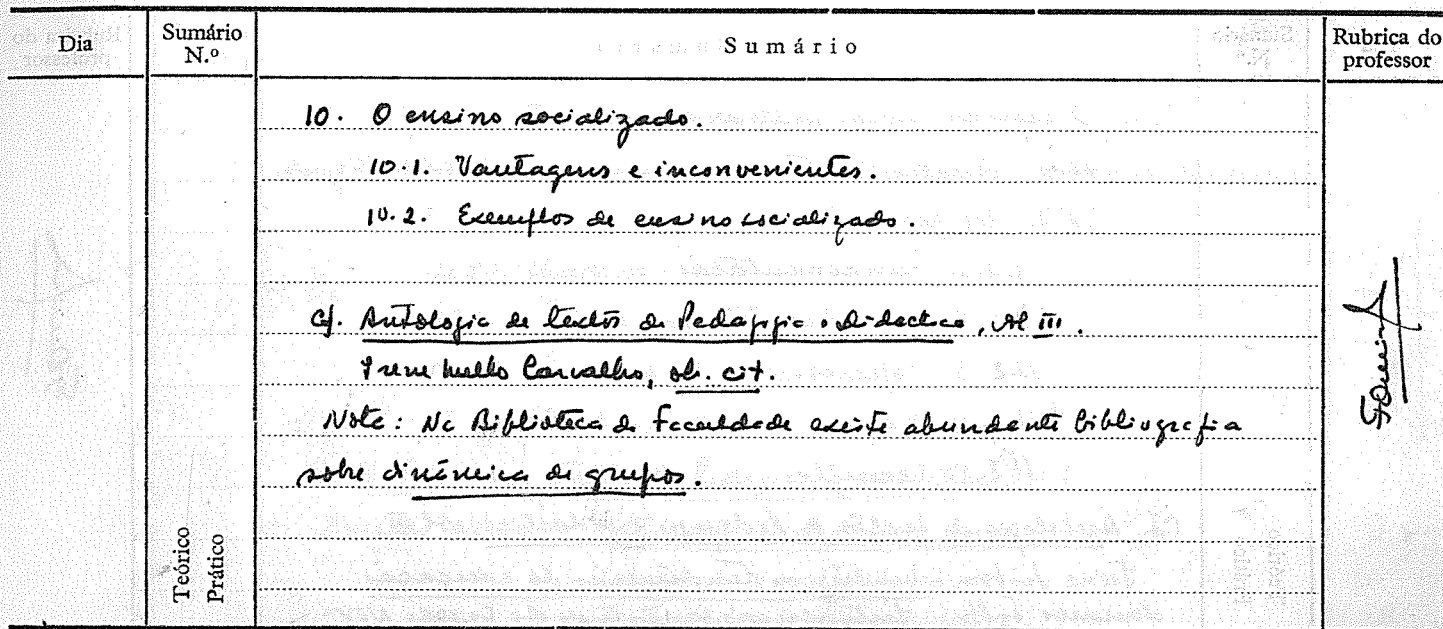 Dia
Sumário N.º
Sumário
Rubrica do professor
10. O ensino socializado.
10.1. Vantagens e inconvenientes.
10.2. Exemplos de ensino socializado.
Cf. Antologia de textos de Pedagogia e Didactica, III.
Irene Mello Carvalho, ob. cit.
Nota: Na Biblioteca da Faculdade existe abundante bibliografia
sobre dinâmica de grupos.
Teórico
Prático